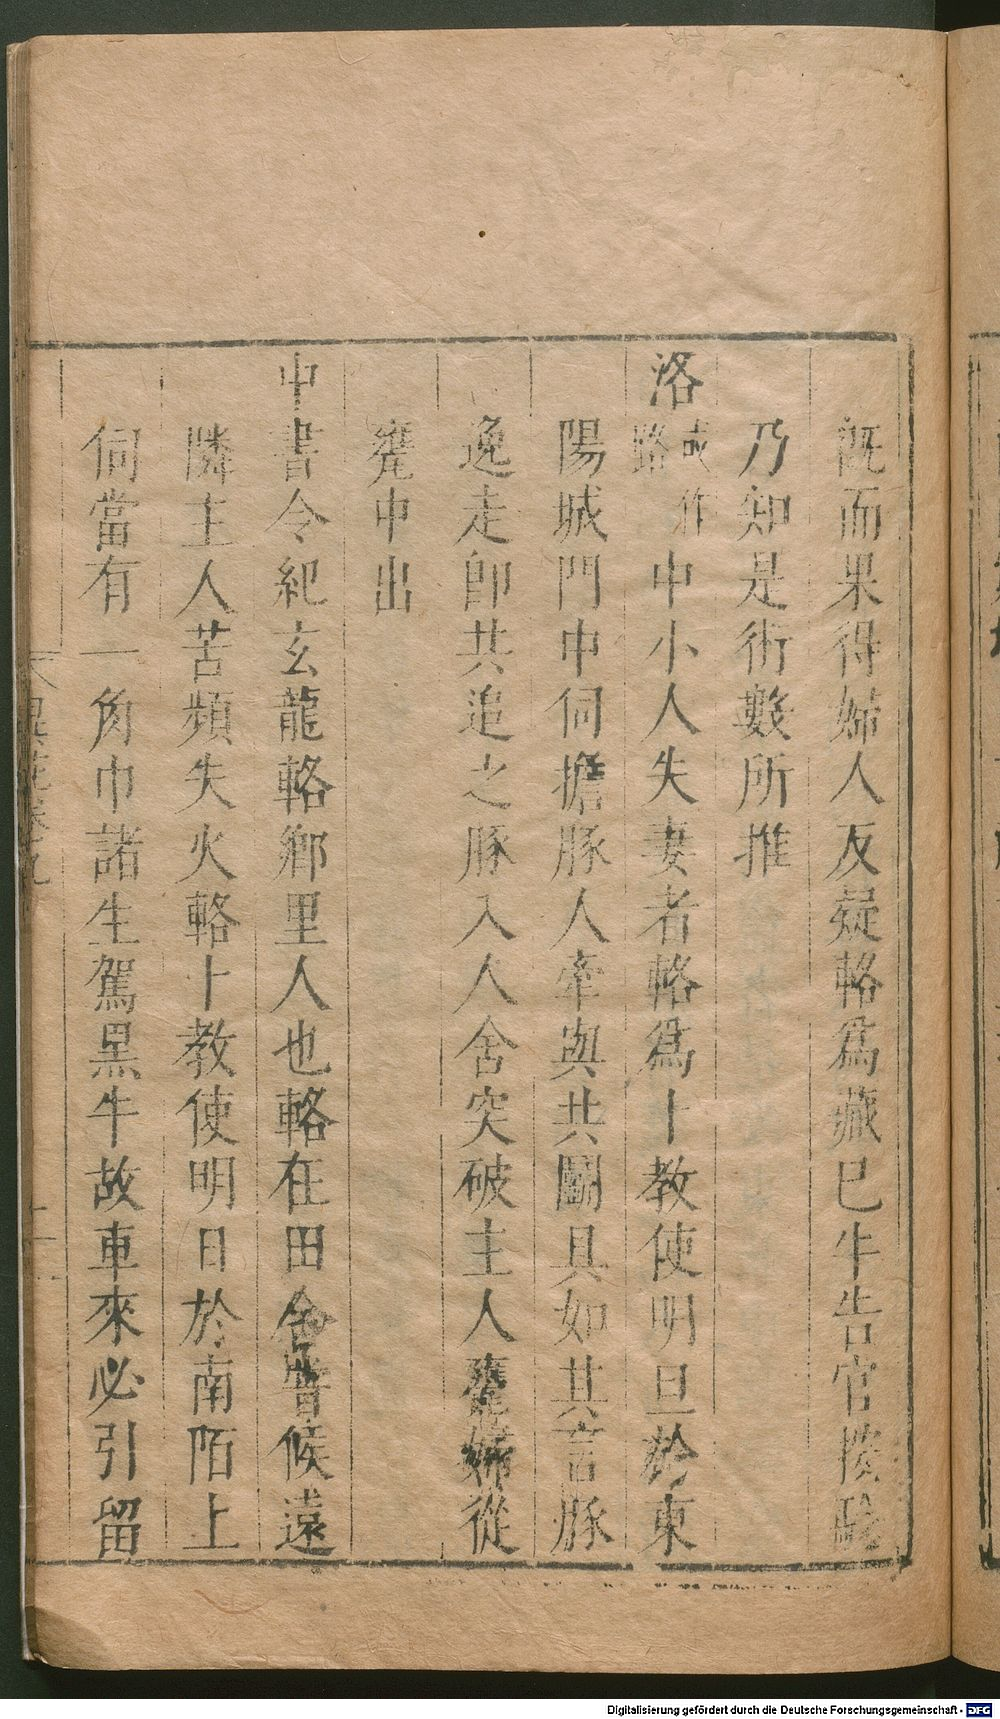 既而果得婦人反疑輅爲藏巳牛告官按驗
乃知是術數所推
洛或作路中小人失妻者輅爲卜教使明旦於東
陽城門中伺擔豚人牽與共鬭具如其言豚
逸走卽共追之豚入人舍突破主人甕婦從
甕中出
中書令紀玄龍輅鄉里人也輅在田舍嘗候遠
隣主人苦頻失火輅卜教使明日於南陌上
伺當有一角巾諸生駕黑牛故車來必引留
異苑卷九
Digitalisierung gefördert durch die Deutsche Forschungsgemeinschaft - DFG